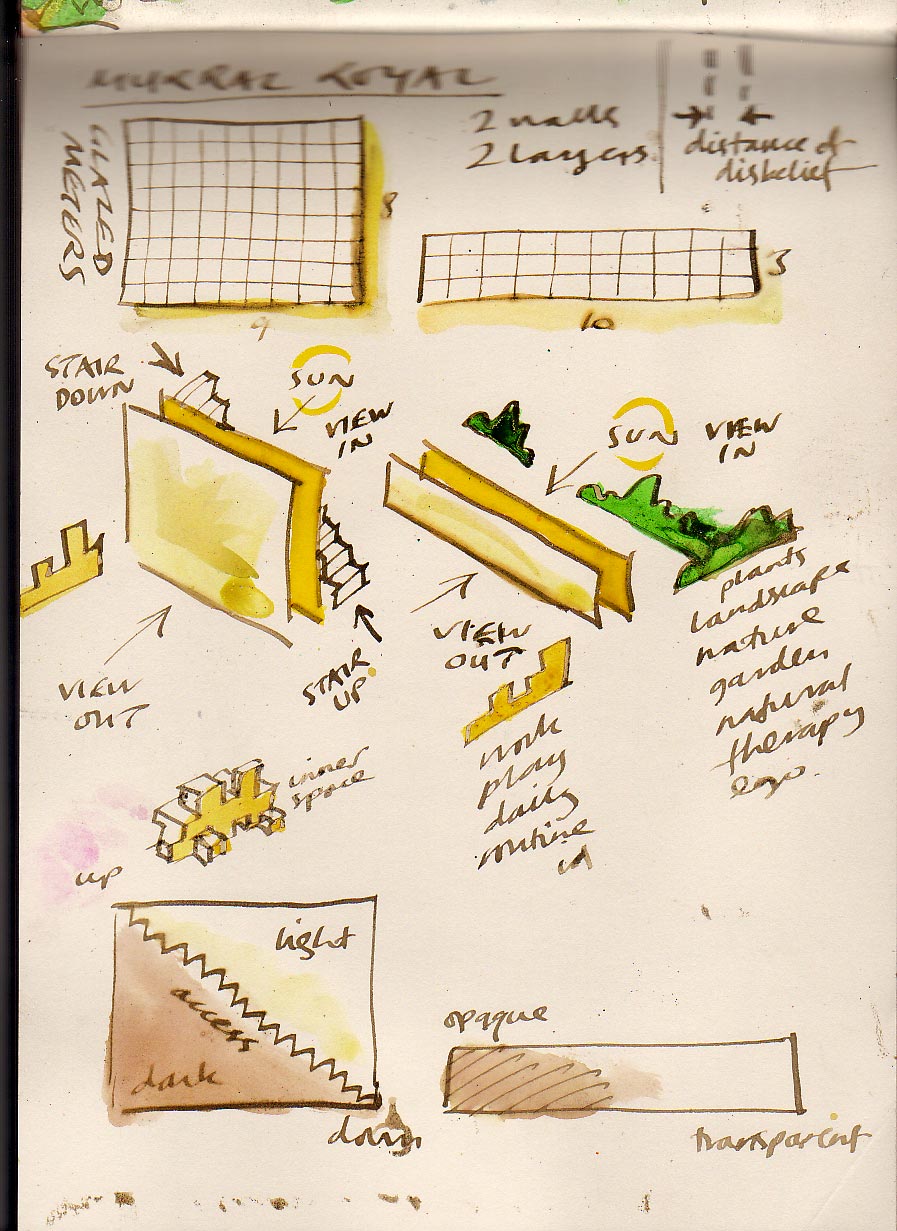 MURRAL ROYAL
GLAZED
METERS
8
9
2 walls
2 layers
distance of
disbelief
3
10
STAIR
DOWN
SUN
VIEW
IN
VIEW
OUT
STAIR
UP.
SUN
VIEW
IN
VIEW
OUT
plants
landscape
nature
garden
natural
therapy
ego.
work
play
daily
routine
id
inner
space
up
light
access
dark
down
opaque
transparent